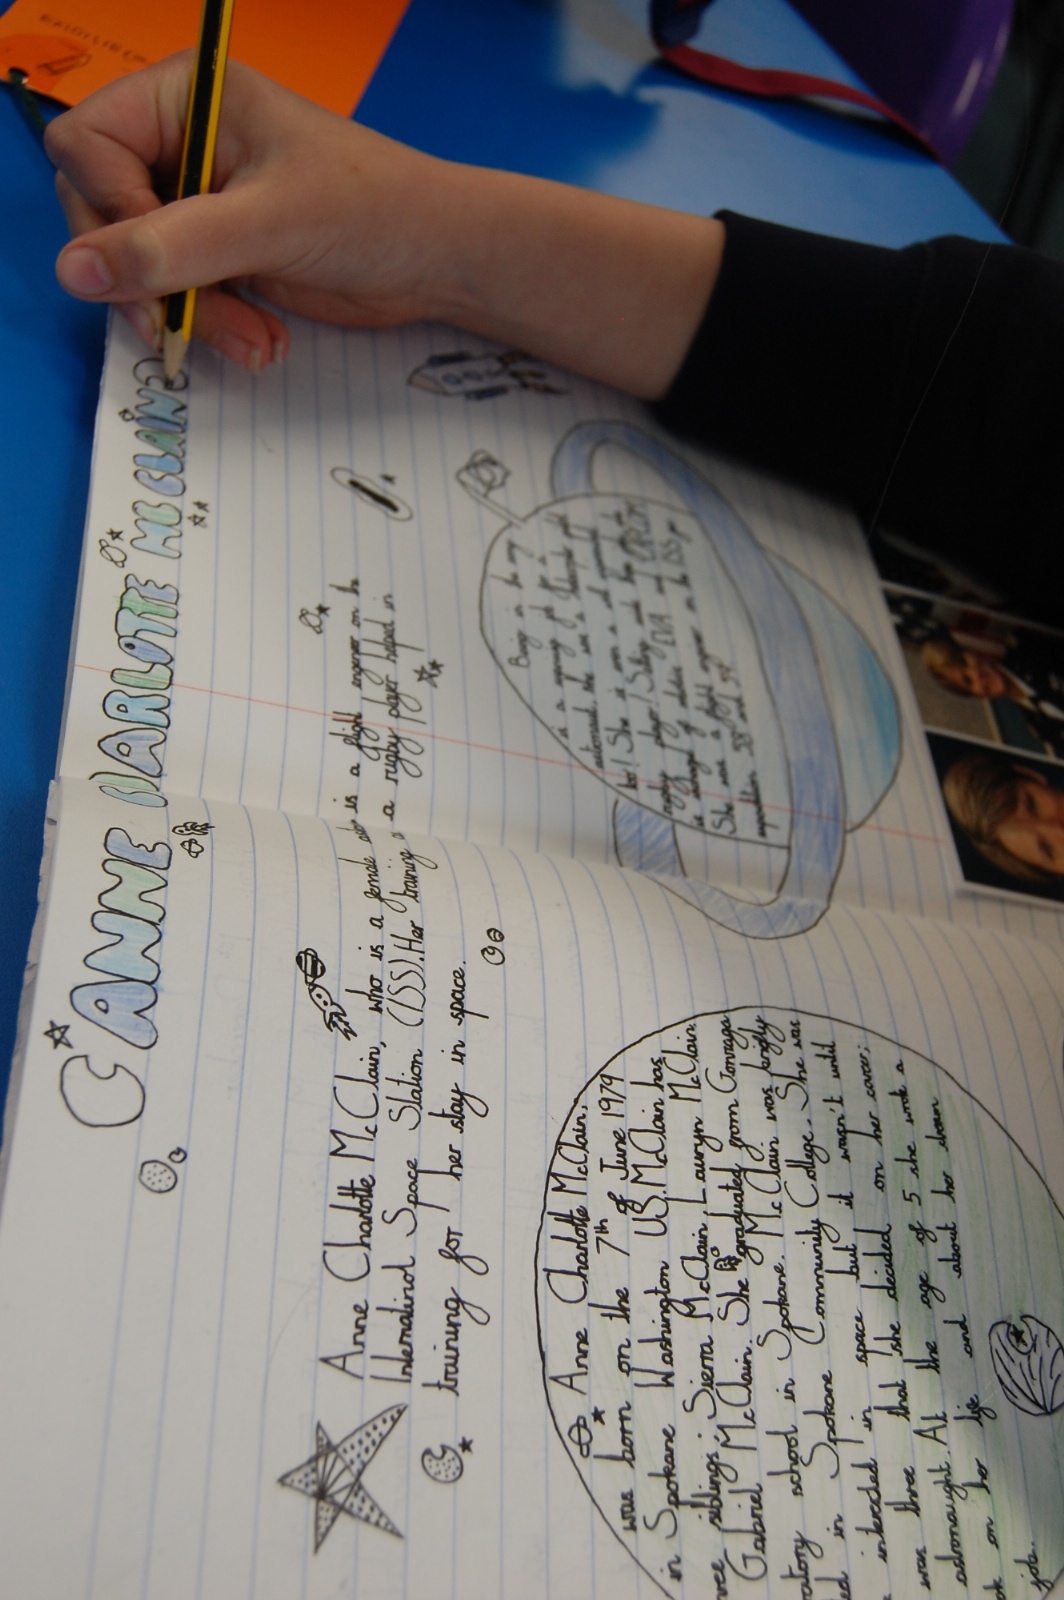 ANNE CHARLOTTE MCCLAIN
Anne Charlotte McClain, who is a female is a flight engineer on the
Internatinol Space Station (ISS). Her training as a rugby player helped in
training for her stay in space.
Anne Charlotte McClain,
was born on the 7th of June 1979
in Spokane Washington US. McClain has
three siblings; Sierra McClain, Lauryn McClain
Gabriel McClain. She graduated from Gonzaga
school in Spokane. McClain was
in Spokane Community College. She was
interested in space but it wasn't until
was three that she decided on her career;
astronaught. At the age of 5 she wrote a
on her life and about her down
job.
Being in the
is a job for a
astronaut, she was a
too! She is even a
rugby player! Sally
is EVA and
She was a flight engineer on the ISS for
expedition 58 and 59!